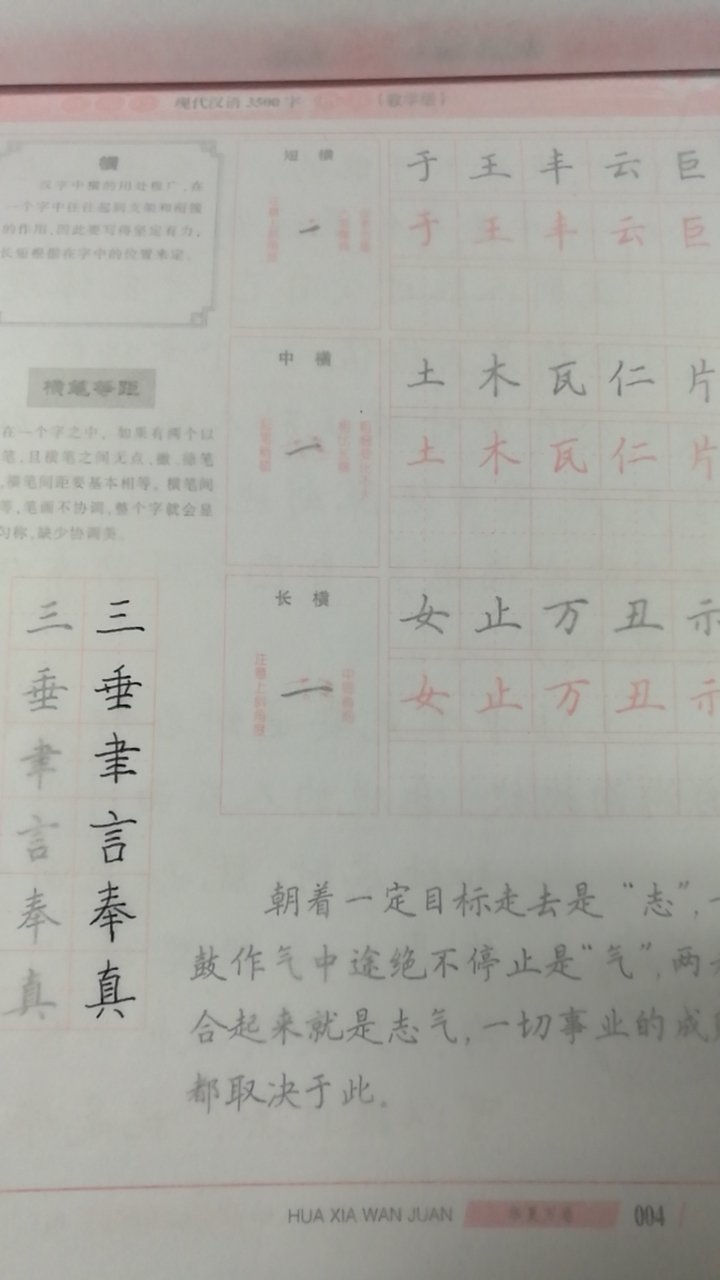 现代汉语3500字 （教学版）
横
汉字中横的用处极广，在
一个字中往往起到支架和衔接
的作用，因此要写得坚定有力，
长短根据在字中的位置来定。
横笔等距
在一个字之中，如果有两个以
笔，且横笔之间无点、撇、捺笔
，横笔间距要基本相等。横笔间
等，笔画不协调，整个字就会显
匀称，缺少协调美。
三 三
垂 垂
聿 聿
言 言
奉 奉
真 真
短横
于 王 丰 云 巨
于 王 丰 云 巨
中横
土 木 瓦 仁 片
土 木 瓦 仁 片
长横
注意上斜角度
女 止 万 丑 示
女 止 万 丑 示
朝着一定目标走去是“志”，一
鼓作气中途绝不停止是“气”，两者
合起来就是志气，一切事业的成败
都取决于此。
HUA XIA WAN JUAN 华夏万卷 004